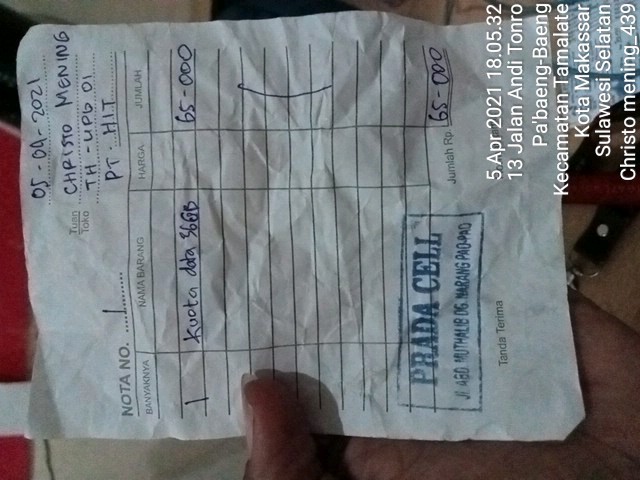 05-04-2021
Tuan CHRISTO MENING
Toko TH-UPG 01
PT. HIT
NOTA NO. 1
BANYAKNYA NAMA BARANG HARGA JUMLAH
1 Kuota data 36GB 65-000
PRADA CELL
Jl. ABD. MUTHALIB DG. NARANG PAO-PAO
Jumlah Rp. 65-000
Tanda Terima
5 Apr 2021 18.05.32
13 Jalan Andi Tonro
Pa'baeng-Baeng
Kecamatan Tamalate
Kota Makassar
Sulawesi Selatan
Christo mening_439